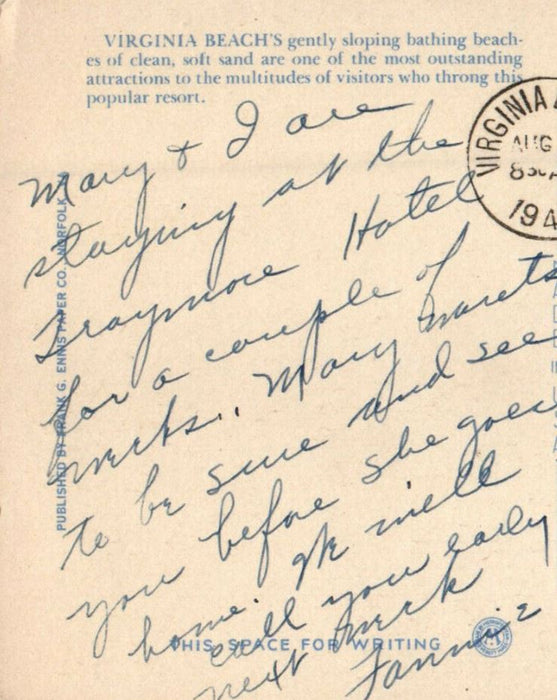 VIRGINIA BEACH'S gently sloping bathing beach-
es of clean, soft sand are one of the most outstanding
attractions to the multitudes of visitors who throng this
popular resort.
VIRGINIA
AUG
830A
194
Mary & I are
staying at the
Traymore Hotel
for a couple of
weeks. Mary wants
to be sure and see
you before she goes
home. We will
call you early
next week
Fannie
PUBLISHED BY FRANK G. ENNIS PAPER CO., NORFOLK
THIS SPACE FOR WRITING